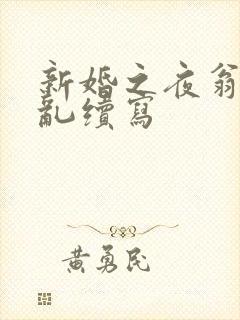 新婚之夜翁
亂續寫
黃勇民